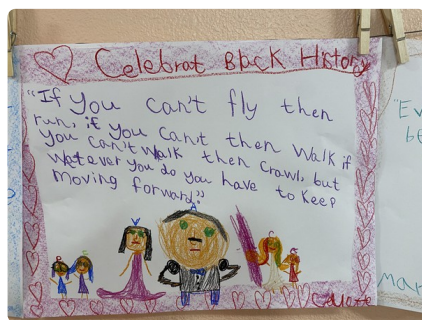 Celebrat Black History
"If you can't fly then
run, if you can't then walk if
you can't walk then crawl, but
watever you do you have to keep
moving forward"
"Ev
be
Mar